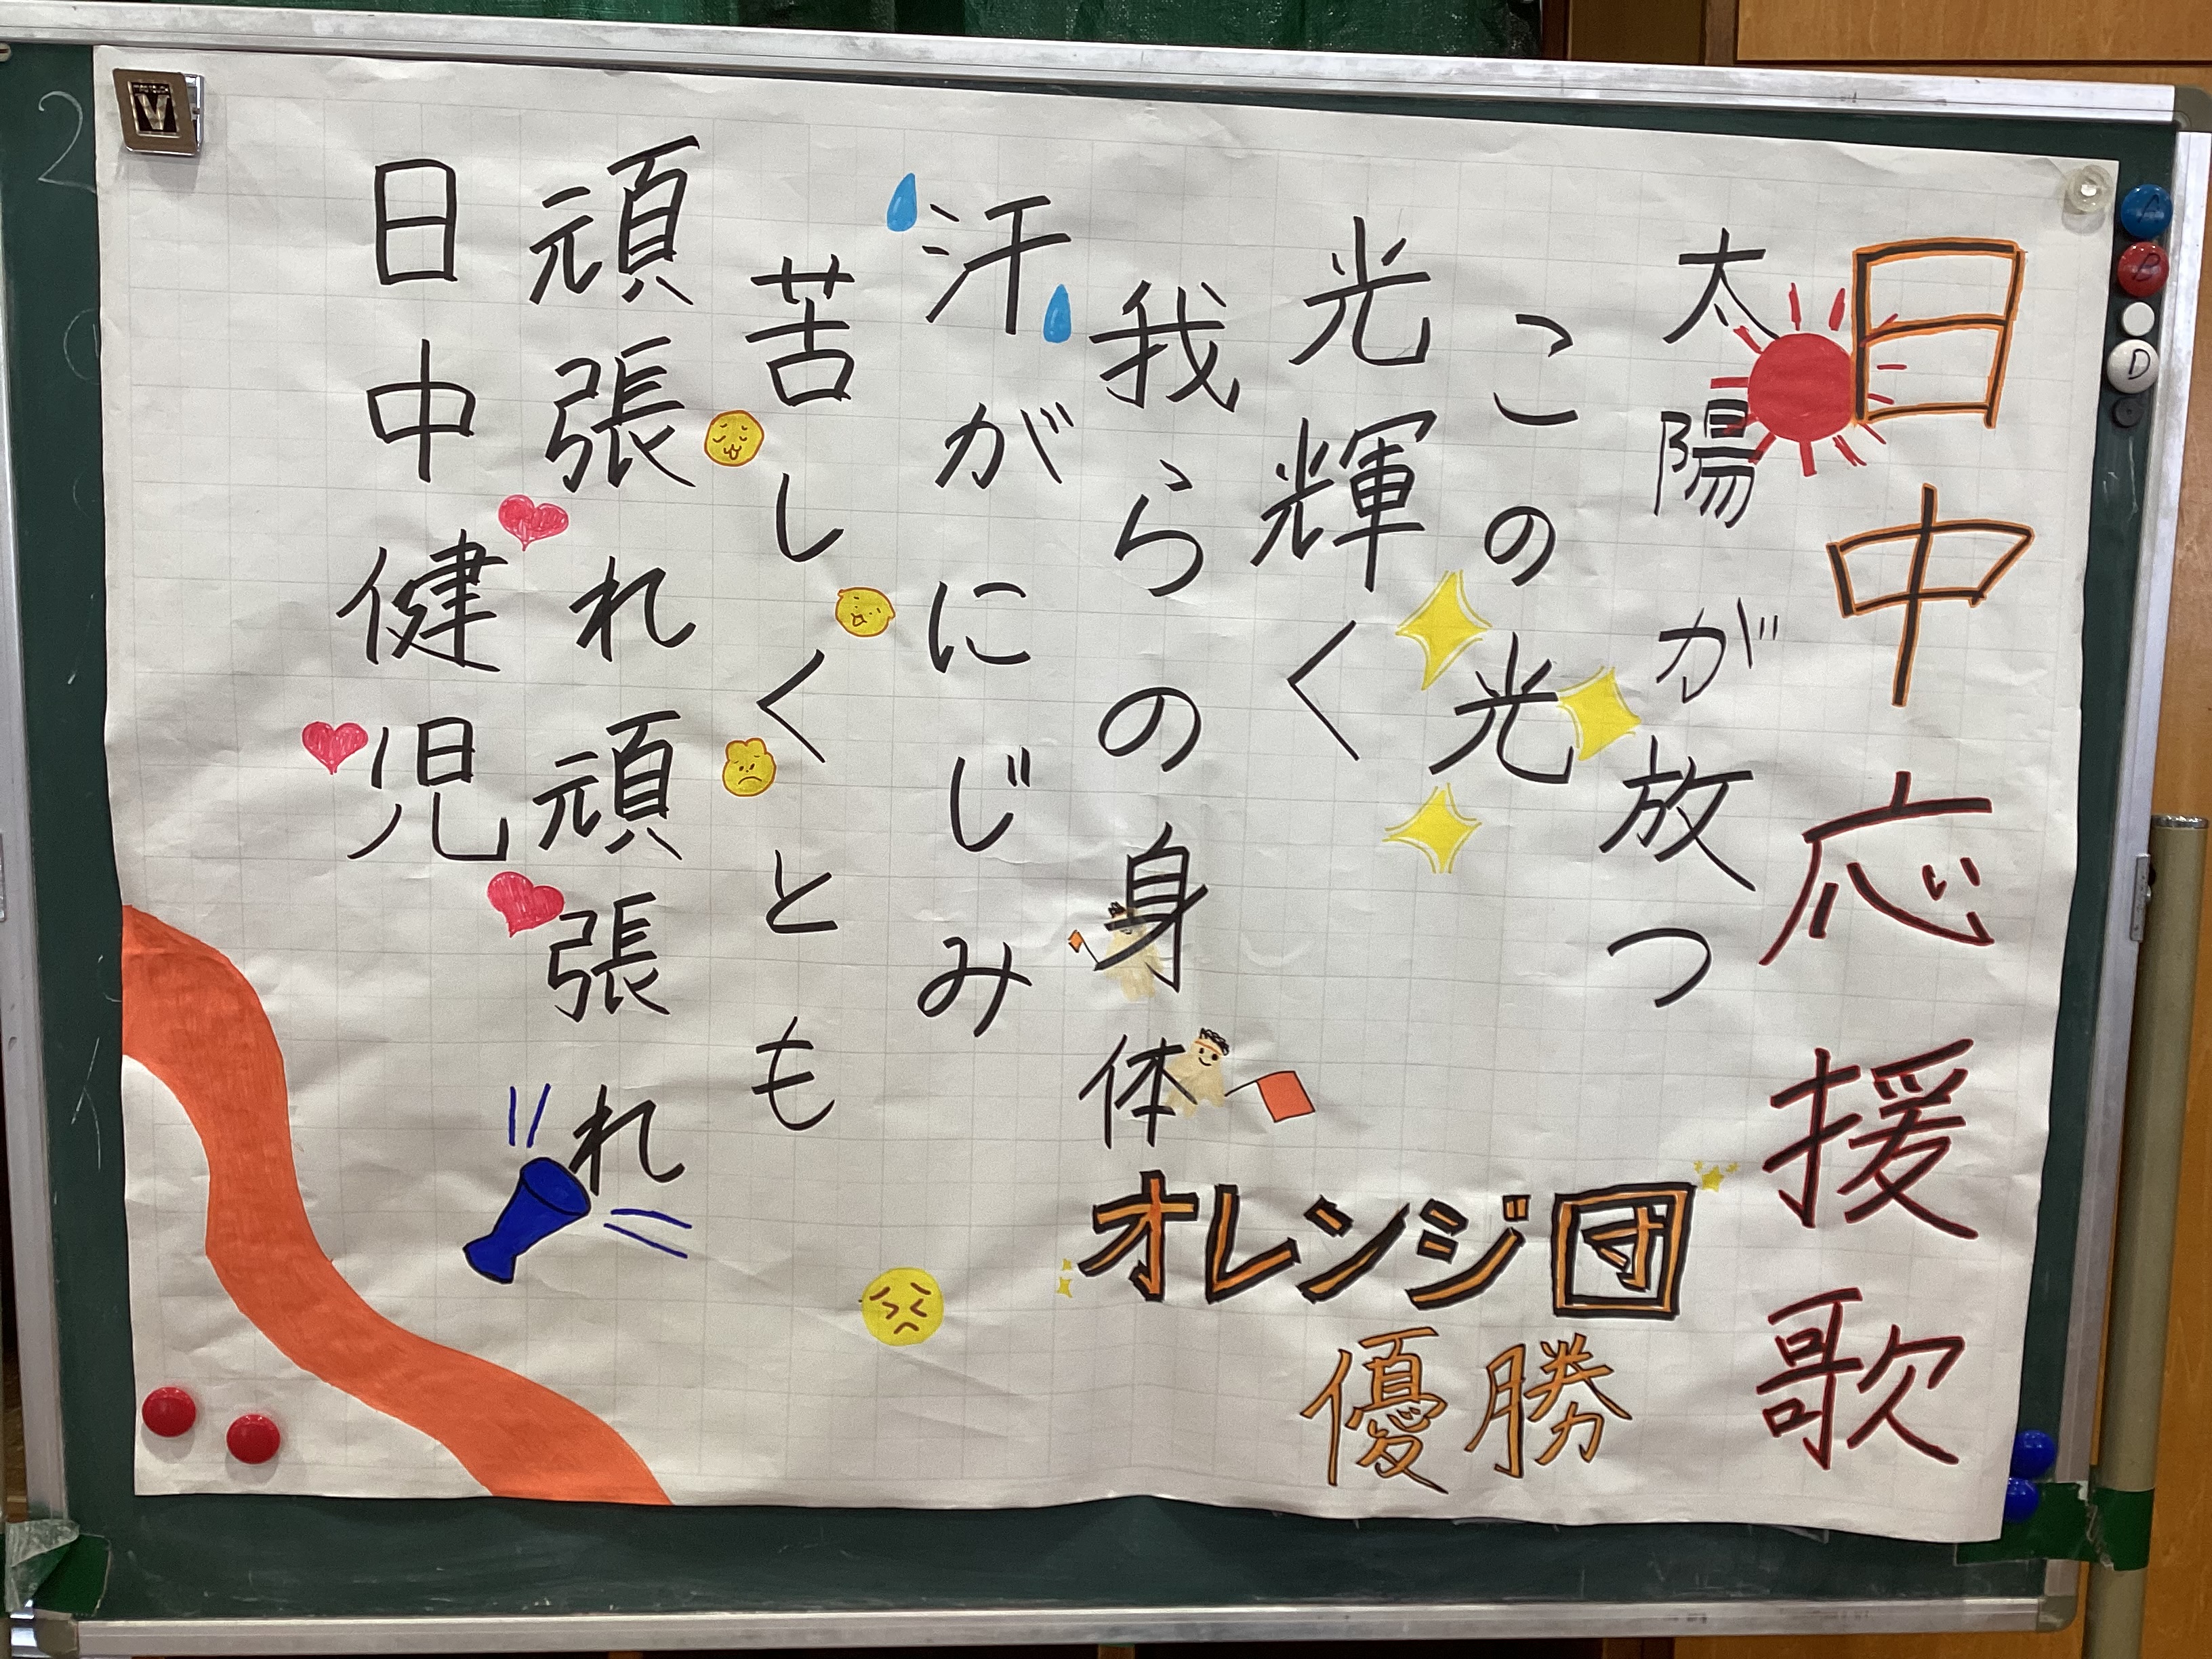 日中応援歌
太陽が放つ
この光
光輝く
我らの身体
汗がにじみ
苦しくとも
頑張れ頑張れ
日中健児
オレンジ団
優勝
A
B
D